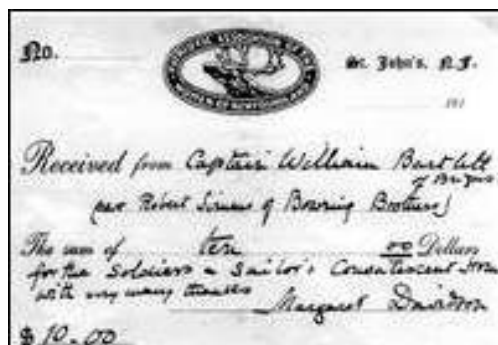 No.
PATRIOTIC ASSOCIATION OF THE WOMEN OF NEWFOUNDLAND
St. John's, N.F.
191
Received from Captain William Bartlett
of Brigus
(per Robert Simms of Bowring Brothers)
The sum of ten 00 Dollars
for the Soldiers & Sailor's Convalescent Home
with very many thanks
Margaret Davidson
$ 10.00